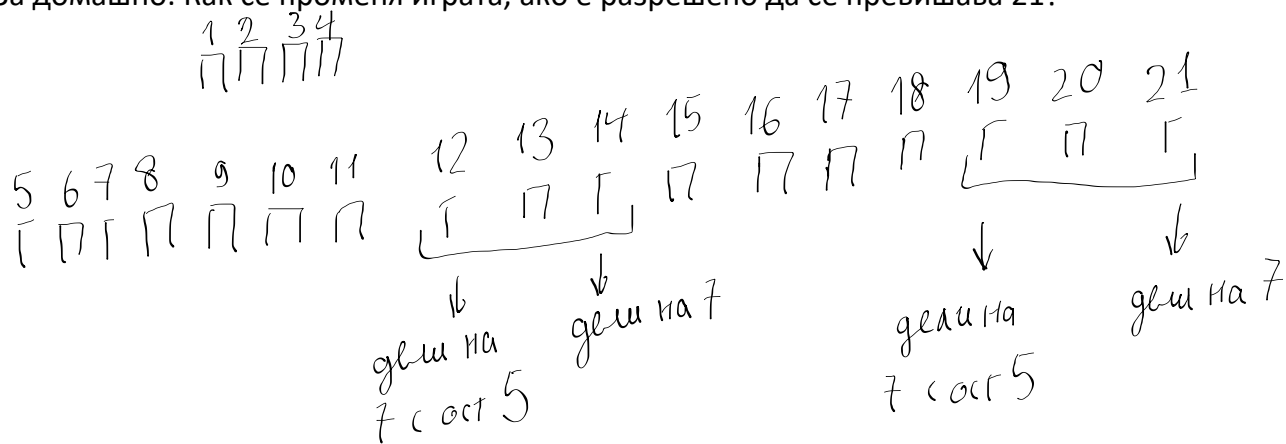 за домашно: Как се променя играта, ако е разрешено да се превишава 21?
1 2 3 4
П П П П
5 6 7 8 9 10 11 12 13 14 15 16 17 18 19 20 21
Г П Г П П П П Г П Г П П П П Г П Г
дели на 7 с ост 5
дели на 7
дели на 7 с ост 5
дели на 7